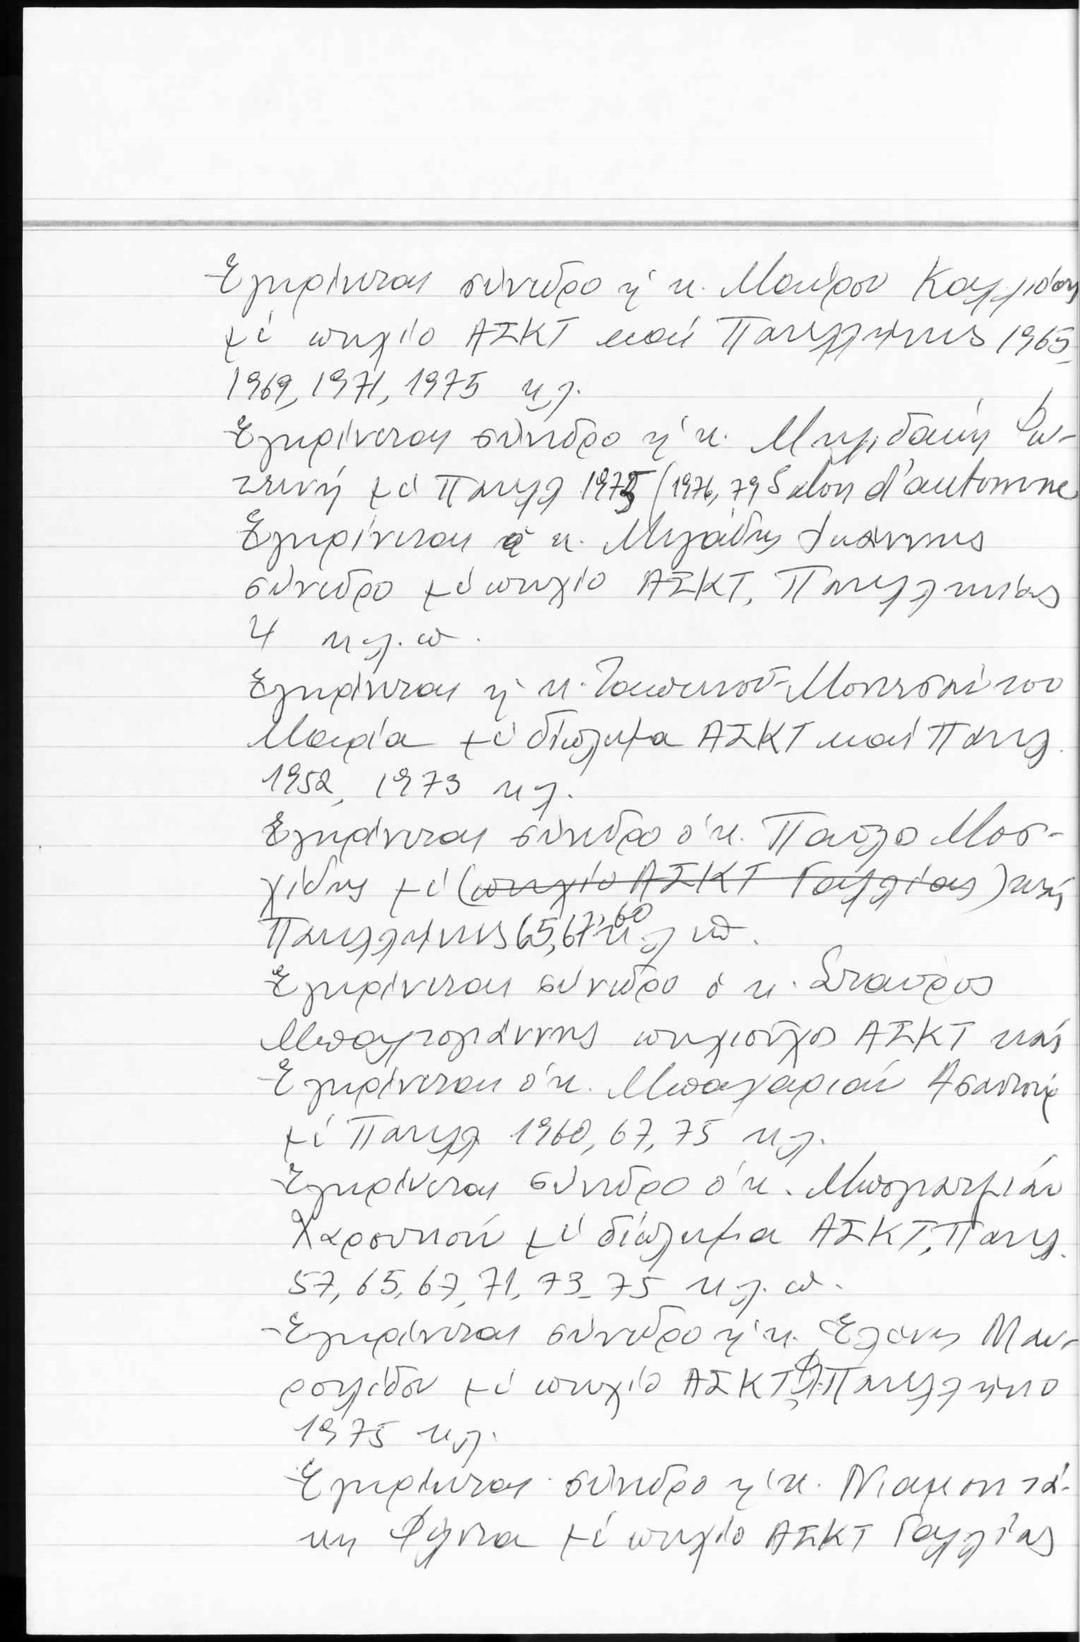 Ἐγκρίνεται σύνεδρο ἡ κ. Μαύρου Καλλιόπη
μέ πτυχίο ΑΣΚΤ καί Πανελλήνιες 1965,
1969, 1971, 1975 κ.λ.
Ἐγκρίνεται σύνεδρο ἡ κ. Μηλιδάκη Φω-
τεινή μέ Πανελλ 1975 (1976, 79 Salon d'automne
Ἐγκρίνεται ὁ κ. Μιγάδης Ἰωάννης
σύνεδρο μέ πτυχίο ΑΣΚΤ, Πανελλήνιες
4 κ.λ.π.
Ἐγκρίνεται ἡ κ. Μονεσσαίτου
Μαρία μέ δίπλωμα ΑΣΚΤ καί Πανελ.
1952, 1973 κ.λ.
Ἐγκρίνεται σύνεδρο ὁ κ. Παῦλο Μοσ-
χίδης μέ (πτυχίο ΑΣΚΤ Γαλλίας) καί
Πανελλήνιες 65, 67, 60 κ.λ.π.
Ἐγκρίνεται σύνεδρο ὁ κ. Σταῦρος
Μπαλτογιάννης πτυχιοῦχος ΑΣΚΤ καί
Ἐγκρίνεται ὁ κ. Μπαχαριάν Ἀσαντούρ
μέ Πανελλ 1960, 67, 75 κ.λ.
Ἐγκρίνεται σύνεδρο ὁ κ.
μέ δίπλωμα ΑΣΚΤ, Πανελ.
57, 65, 67, 71, 73, 75 κ.λ.π.
Ἐγκρίνεται σύνεδρο ἡ κ. Ἑλένης Μαυ-
ρουλίδου μέ πτυχίο ΑΣΚΤ, Πανελλήνιο
1975 κ.λ.
Ἐγκρίνεται σύνεδρο ἡ κ.
κη μέ πτυχίο ΑΣΚΤ Γαλλίας